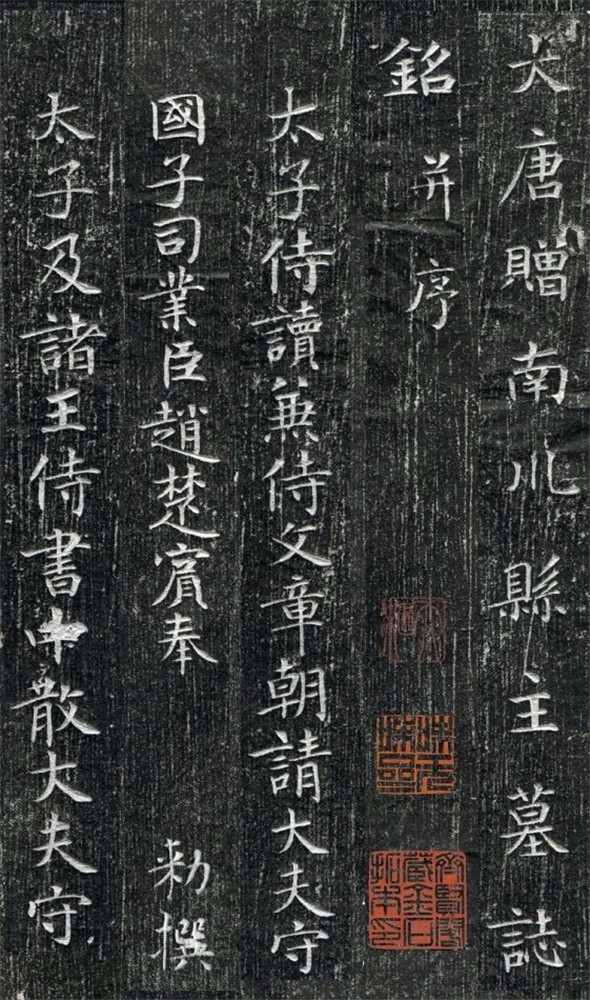 大唐贈南川縣主墓誌
銘 并序
太子侍讀兼侍文章朝請大夫守
國子司業臣趙楚賓奉 勅撰
太子及諸王侍書中散大夫守